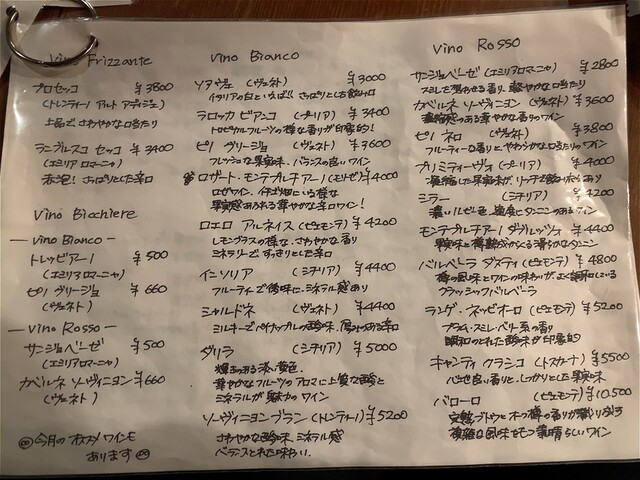 Vino Frizzante
プロセッコ ¥3800
(トレンティーノ アルト アディジェ)
上品で、さわやかな口当たり
ランブルスコ セッコ ¥3400
(エミリア ロマーニャ)
赤泡! さっぱりとした辛口
Vino Bicchiere
- Vino Bianco -
トレッビアーノ ¥500
(エミリアロマーニャ)
ピノ グリージョ ¥660
(ヴェネト)
- Vino Rosso -
サンジョベーゼ ¥500
(エミリアロマーニャ)
カベルネ ソーヴィニヨン ¥660
(ヴェネト)
今月のオススメワインも
あります
Vino Bianco
ソアヴェ (ヴェネト) ¥3000
イタリアの白といえば!! さっぱりとした飲み口
ラロッカ ビアンコ (プーリア) ¥3400
トロピカルフルーツの様な香りが印象的!
ピノ グリージョ (ヴェネト) ¥3600
フレッシュな果実味、バランスの良いワイン
ロザート・モンテプルチアーノ (モリーゼ) ¥4000
ロゼワイン、イチゴ畑にいる様な
果実感あふれる華やかな辛口ワイン!
ロエロ アルネイス (ピエモンテ) ¥4200
レモングラスの様な、さわやかな香り
ミネラリーで、すっきりとした辛口
インソリア (シチリア) ¥4400
フルーティーで後味に、ミネラル感あり
シャルドネ (ヴェネト) ¥4400
ミルキーでパイナップルの酸味、厚みのある辛口
ダリラ (シチリア) ¥5000
輝きのある淡い黄色、
華やかなフルーツのアロマに上質な酸と
ミネラルが魅力のワイン
ソーヴィニヨン ブラン (トレンティーノ) ¥5200
さわやかな酸味、ミネラル感
バランスとれた味わい。
Vino Rosso
サンジョベーゼ (エミリアロマーニャ) ¥2800
スミレを思わせる香り、軽やかな口当たり
カベルネ ソーヴィニヨン (ヴェネト) ¥3600
濃縮感のある華やかな香りのワイン
ピノ ネロ (ヴェネト) ¥3800
フルーティーな香りと、やわらかな口当たり
プリミティーヴォ (プーリア) ¥4000
凝縮した果実味が、リッチで飲みごたえあり
シラー (シチリア) ¥4200
濃いルビー色、適度にタンニンのあるワイン
モンテプルチアーノ ダブルッツォ ¥4400
果実味と樽熟がかくる滑らかなタンニン
バルベーラ ダスティ (ピエモンテ) ¥4800
樽の風味とワインの味わいが、よく調和している
クラッシックバルベーラ
ランゲ・ネッビオーロ (ピエモンテ) ¥5200
プラム・スミレ・ベリー系の香り
調和のとれた酸味が印象的
キャンティ クラシコ (トスカーナ) ¥5500
バニラ良い香りと、しっかりとした果実味
バローロ (ピエモンテ) ¥10.500
完熟ブドウとオーク樽の香りが
複雑な風味をもつ素晴らしいワイン